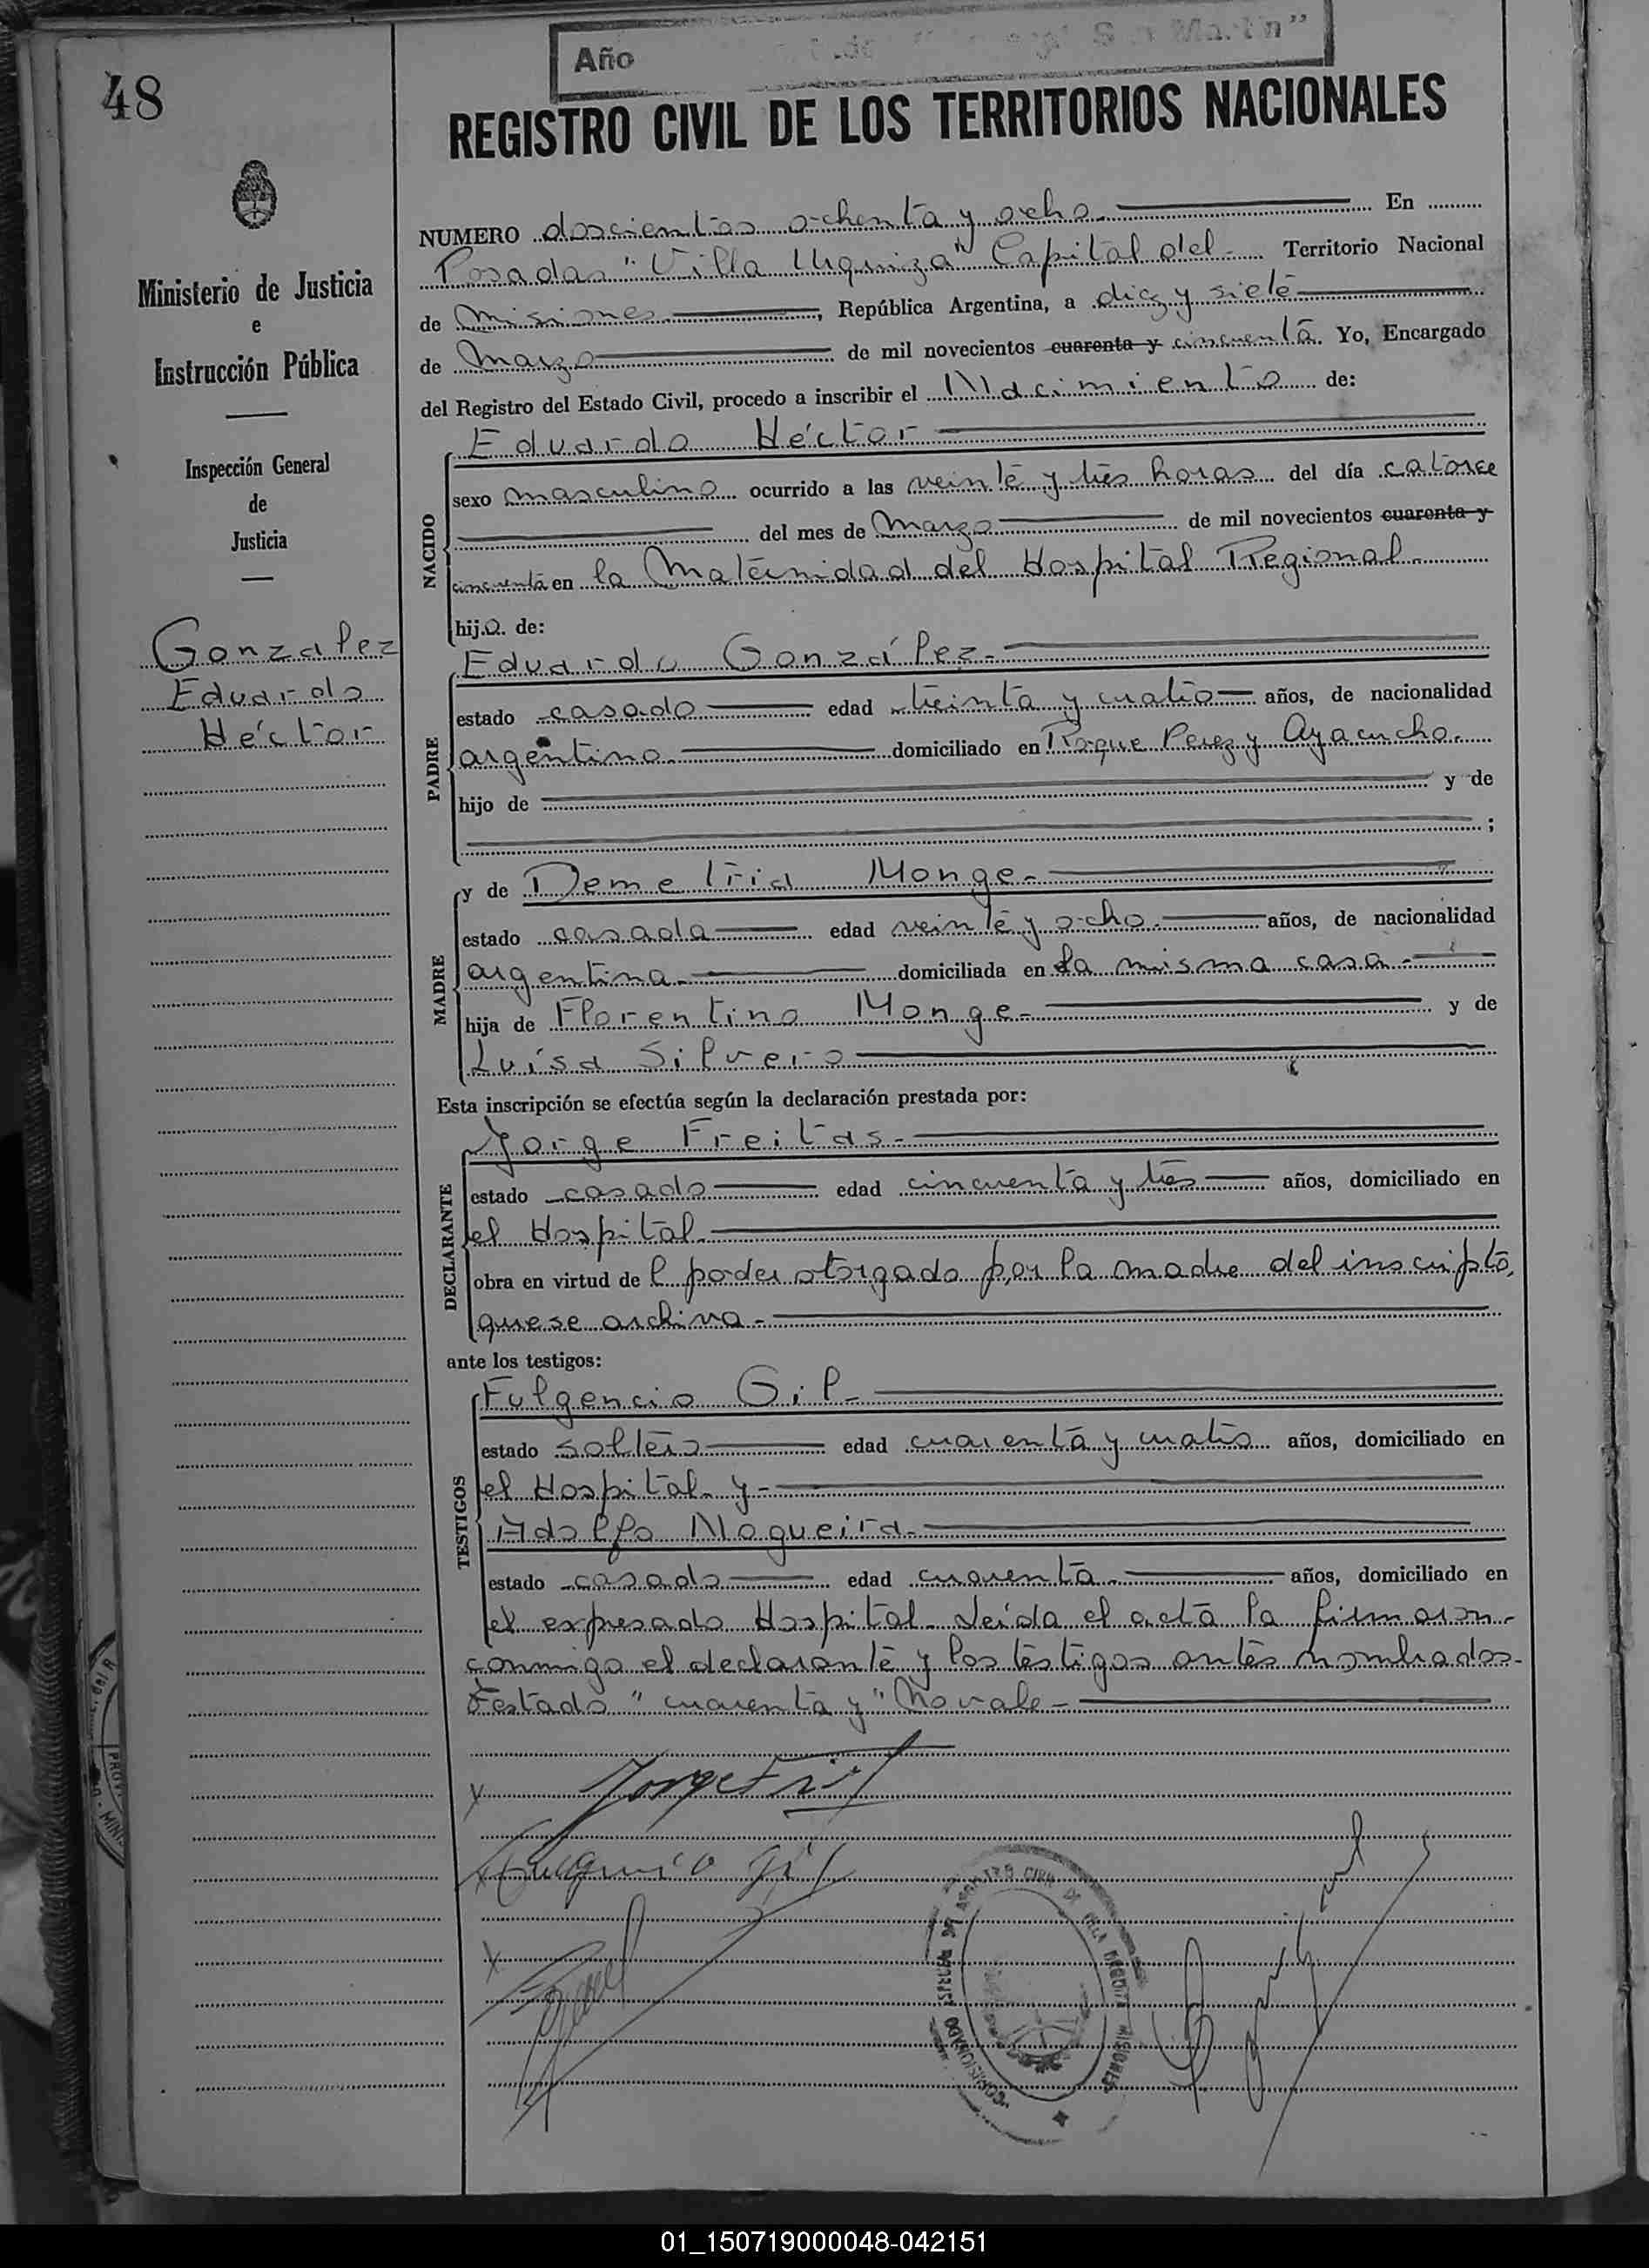 48
Año San Martín"
REGISTRO CIVIL DE LOS TERRITORIOS NACIONALES
Ministerio de Justicia
e
Instrucción Pública
Inspección General
de
Justicia
Gonzalez
Eduardo
Héctor
NUMERO doscientos ochenta y ocho. En
Posadas "Villa Urquiza" Capital del Territorio Nacional
de Misiones, República Argentina, a diez y siete
de Marzo de mil novecientos cuarenta y cincuenta. Yo, Encargado
del Registro del Estado Civil, procedo a inscribir el Nacimiento de:
NACIDO
Eduardo Héctor
sexo masculino ocurrido a las veinte y tres horas del día catorce
del mes de Marzo de mil novecientos cuarenta y
cincuenta en la Maternidad del Hospital Regional
hijo de:
PADRE
Eduardo González
estado casado edad treinta y cuatro años, de nacionalidad
argentino domiciliado en Roque Perez y Ayacucho.
hijo de y de
;
MADRE
y de Demetria Monge
estado casada edad veinte y ocho. años, de nacionalidad
argentina domiciliada en la misma casa
hija de Florentino Monge y de
Luísa Silvero
Esta inscripción se efectúa según la declaración prestada por:
DECLARANTE
Jorge Freitas
estado casado edad cincuenta y tres años, domiciliado en
el Hospital
obra en virtud del poder otorgado por la madre del inscripto,
que se archiva
ante los testigos:
TESTIGOS
Fulgencio Gil
estado soltero edad cuarenta y cuatro años, domiciliado en
el Hospital y
Adolfo Nogueira
estado casado edad cuarenta años, domiciliado en
el expresado Hospital. Leída el acta la firmaron
conmigo el declarante y los testigos antes nombrados
Testado "cuarenta y" No vale
x
Fulgencio Gil
x
REGISTRO CIVIL DE VILLA URQUIZA MISIONES
COMISIONADO
01_150719000048-042151